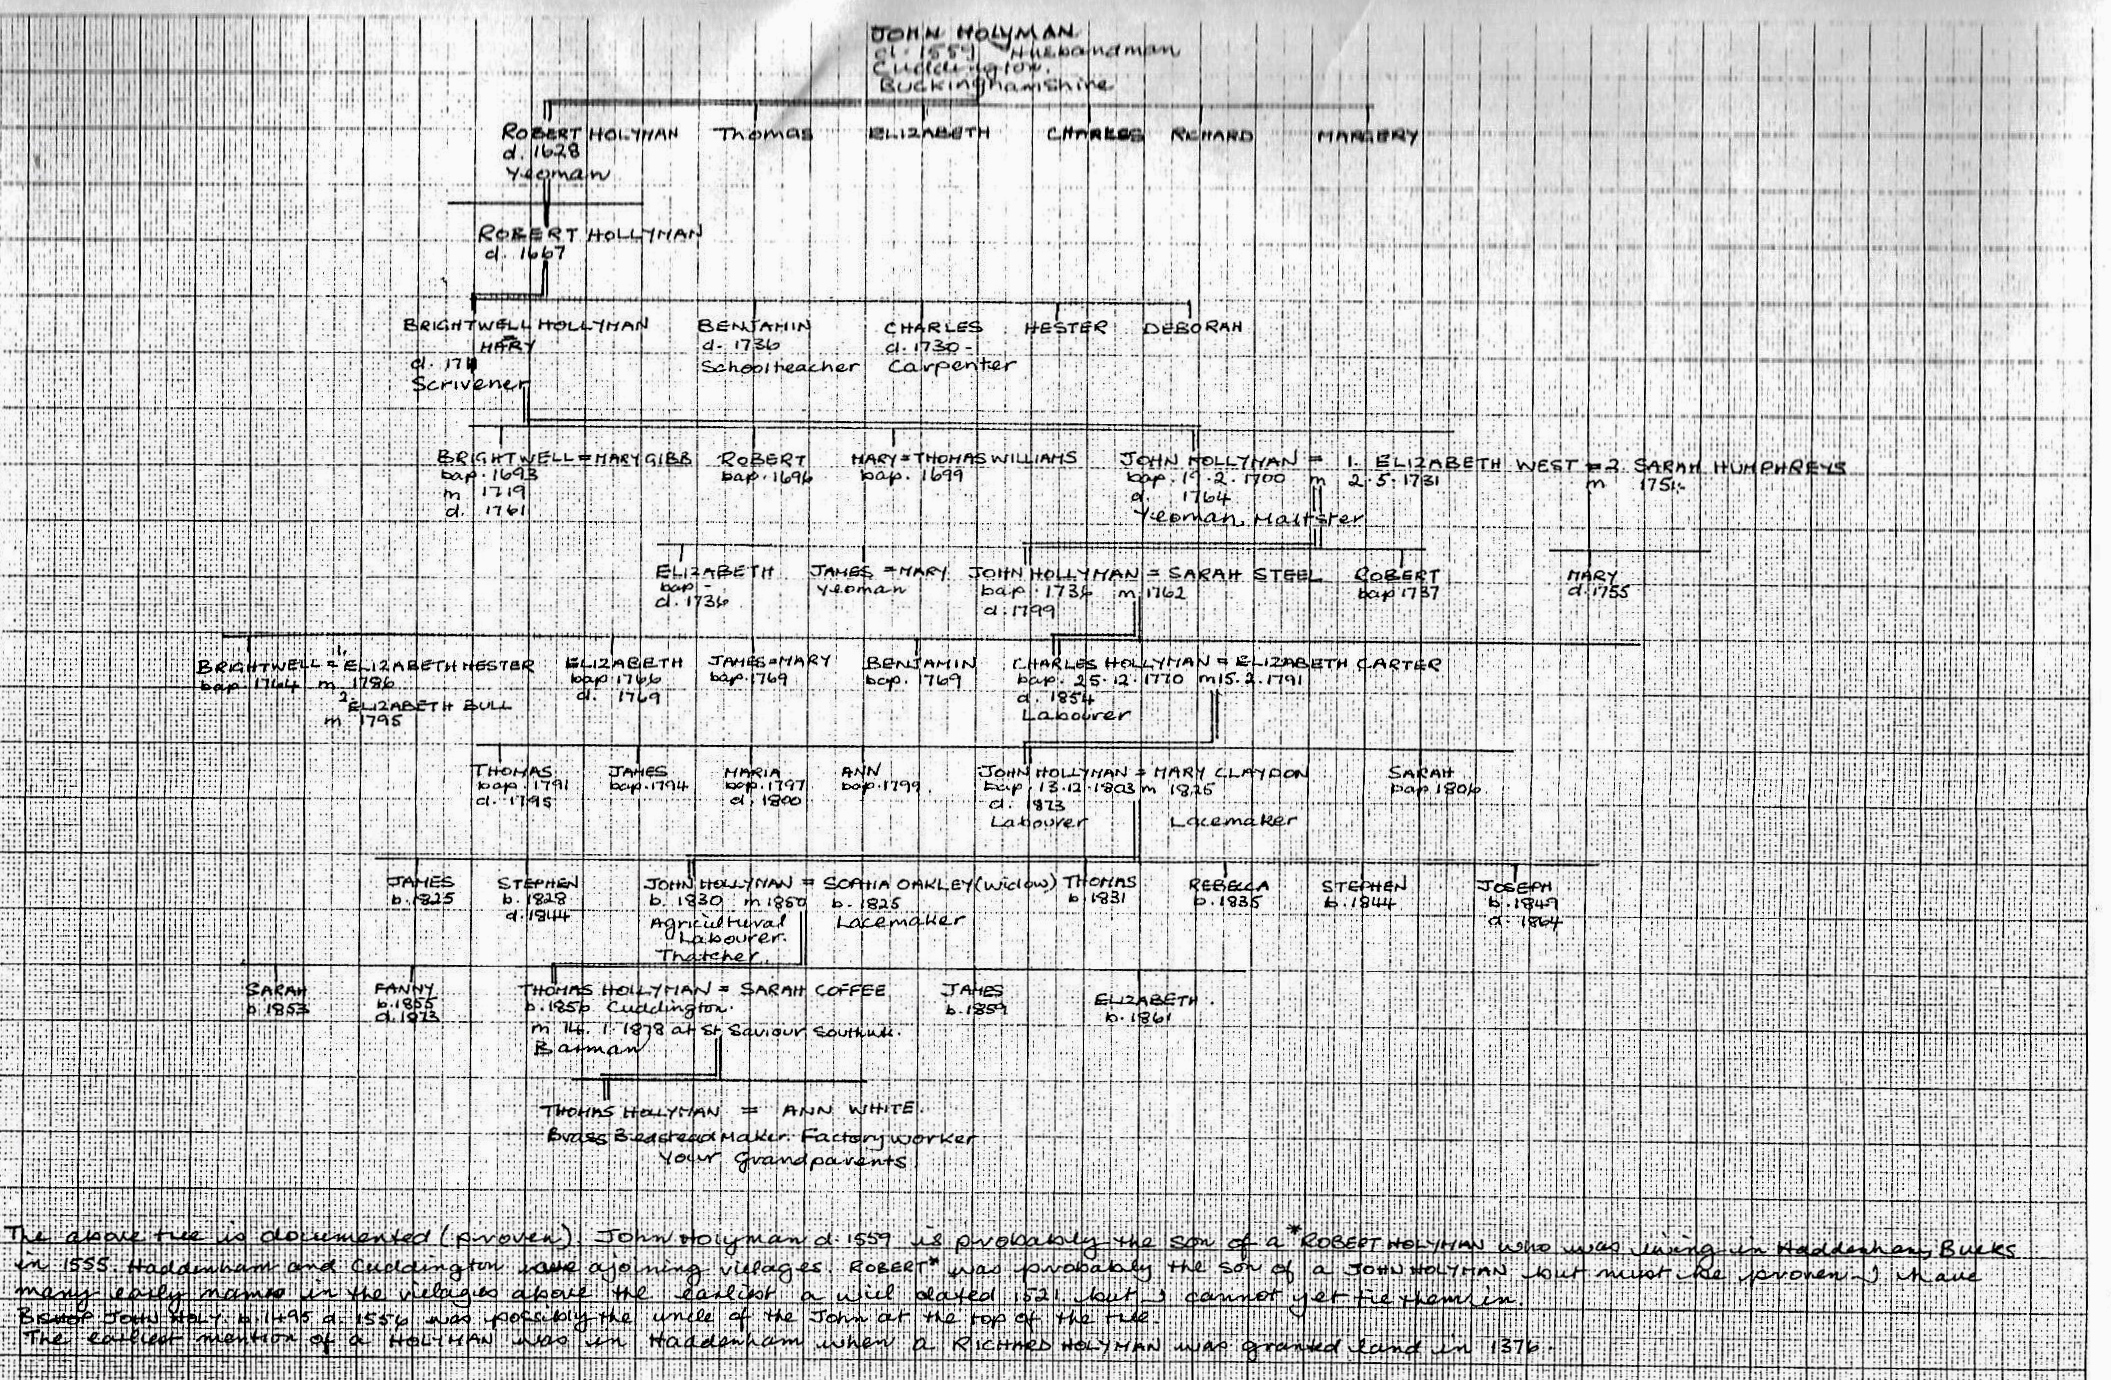 JOHN HOLYMAN
d. 1559 Husbandman
Cuddington.
Buckinghamshire
ROBERT HOLYMAN Thomas ELIZABETH CHARLES RICHARD MARGERY
d. 1628
Yeoman
ROBERT HOLLYMAN
d. 1667
BRIGHTWELL HOLLYMAN BENJAMIN CHARLES HESTER DEBORAH
= MARY d. 1736 d. 1730 -
d. Schoolteacher Carpenter
Scrivener
BRIGHTWELL = MARY GIBB ROBERT MARY = THOMAS WILLIAMS JOHN HOLLYMAN = 1. ELIZABETH WEST = 2. SARAH HUMPHREYS
bap. 1693 bap. 1696 bap. 1699 bap. 19. 2. 1700 m 2. 5. 1731 m 1751.
m 1719 d. 1764
d. 1761 Yeoman, Maltster
ELIZABETH JAMES = MARY JOHN HOLLYMAN = SARAH STEEL ROBERT MARY
bap - Yeoman bap. 1736 m 1762 bap 1737 d. 1755
d. 1736 d. 1799
BRIGHTWELL = 1. ELIZABETH HESTER ELIZABETH JAMES = MARY BENJAMIN CHARLES HOLLYMAN = ELIZABETH CARTER
bap. 1764 m 1786 bap 1766 bap. 1769 bap. 1769 bap. 25. 12. 1770 m 15. 2. 1791
2 ELIZABETH BULL d. 1769 d. 1854
m 1795 Labourer
THOMAS JAMES MARIA ANN JOHN HOLLYMAN = MARY CLAYDON SARAH
bap. 1791 bap. 1794 bap. 1797 bap. 1799. bap. 13. 12. 1803 m 1825 bap 1806.
d. 1795 d. 1800 d. 1873
Labourer Lacemaker
JAMES STEPHEN JOHN HOLLYMAN = SOPHIA OAKLEY (widow) THOMAS REBELLA STEPHEN JOSEPH
b. 1825 b. 1828 b. 1830 m 1850 b. 1825 b. 1831 b. 1835 b. 1844 b. 1849
d. 1844 Agricultural Lacemaker d. 1864
Labourer.
Thatcher.
SARAH FANNY THOMAS HOLLYMAN = SARAH COFFEE JAMES ELIZABETH.
b 1853 b. 1855 b. 1856 Cuddington. b. 1859 b. 1861
d. 1873 m 14. 1. 1878 at St Saviour Southwk.
Barman
THOMAS HOLLYMAN = ANN WHITE.
Brass Bedstead Maker. Factory worker
Your Grandparents
The above tree is documented (proven). John Holyman d. 1559 is probably the son of a *ROBERT HOLYMAN who was living in Haddenham, Bucks
in 1555. Haddenham and Cuddington are ajoining villages. ROBERT* was probably the son of a JOHN HOLYMAN but must be proven. I have
many early names in the villages above the earliest a will dated 1521 but I cannot yet tie them in.
BISHOP JOHN HOLY. b. 1495 d. 1556 was possibly the uncle of the John at the top of the tree.
The earliest mention of a HOLYMAN was in Haddenham when a RICHARD HOLYMAN was granted land in 1376.